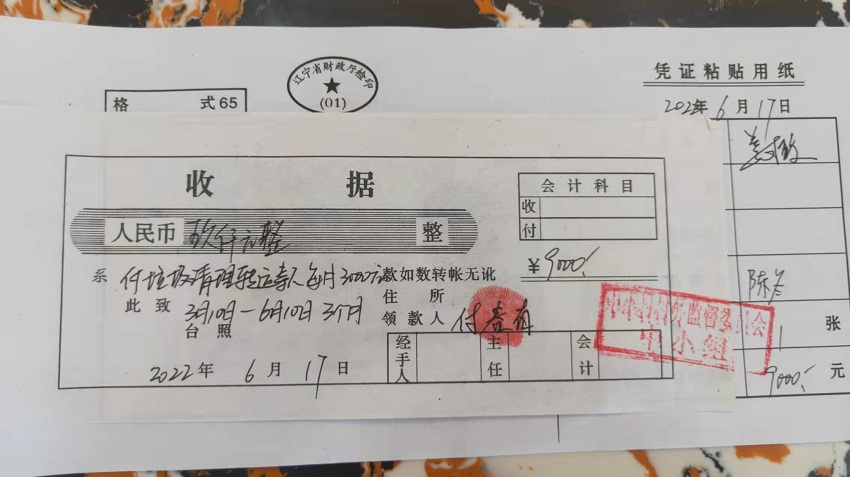 辽宁省财政厅检印
(01)
格 式65
凭证粘贴用纸
2022年6月17日
收 据
会计科目
收
付
人民币 玖仟元整 整
¥9000/
系 付垃圾清理转运 人每月3000元款如数转帐无讹
此致 3月10日-6月10日 3个月 住所
台照 领款人 付 有
经手人 主任 会计
2022年 6月17日
监督委 会
中小组
陈
1 张
9000/ 元